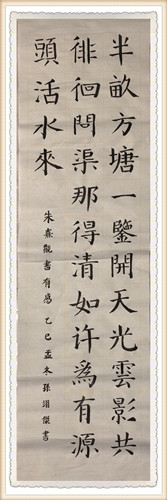 半畝方塘一鑒開天光雲影共
徘徊問渠那得清如许為有源
頭活水來
朱熹觀書有感 乙巳孟冬 張傑書